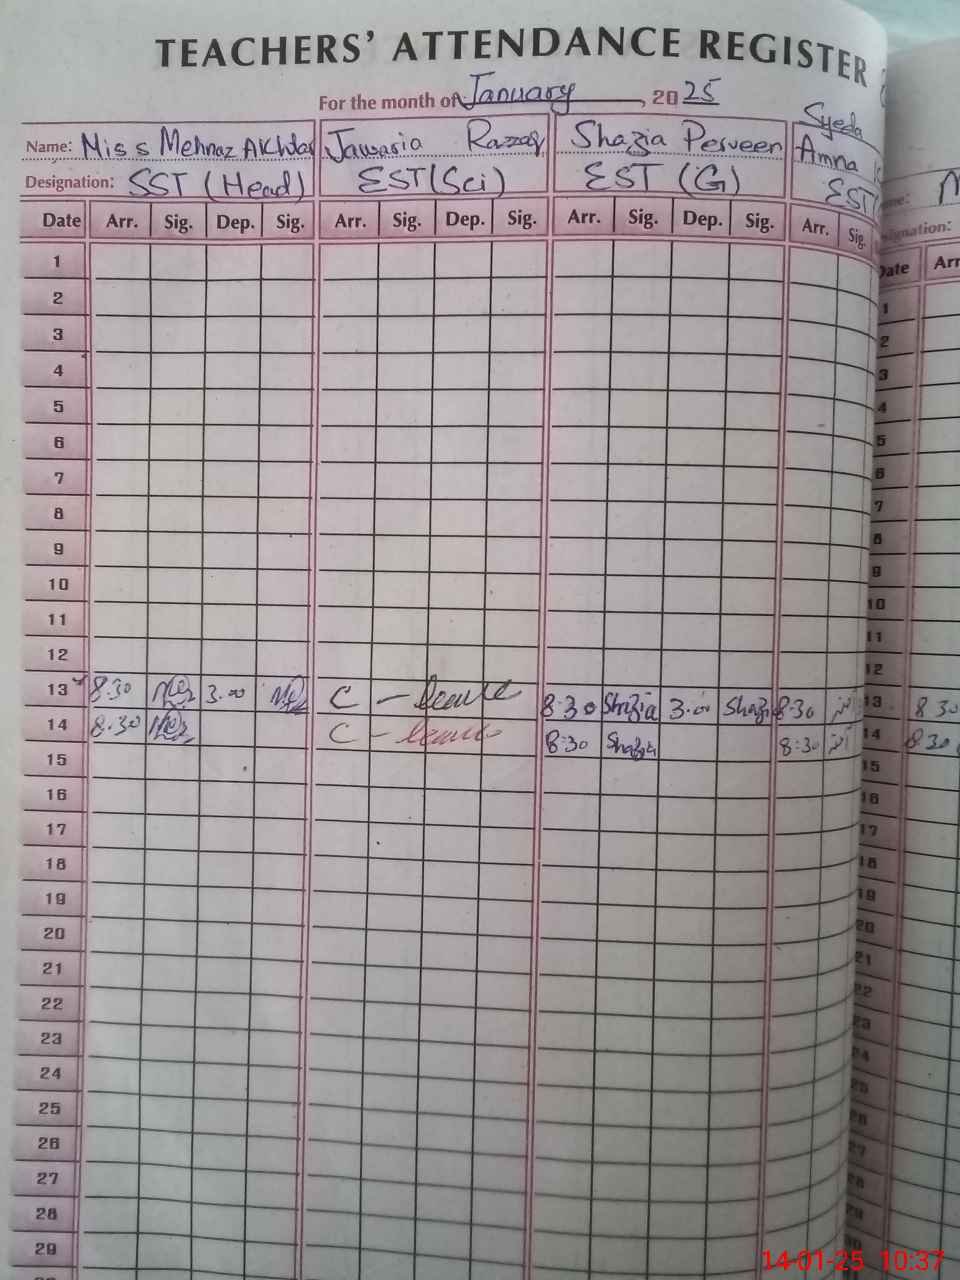 TEACHERS' ATTENDANCE REGISTER
For the month of January, 2025
Name: Miss Mehnaz Akhtar Jawaria Razzaq Shazia Perveen Syeda Amna
Designation: SST (Head) EST (Sci) EST (G) EST
Date Arr. Sig. Dep. Sig. Arr. Sig. Dep. Sig. Arr. Sig. Dep. Sig. Arr. Sig.
1
2
3
4
5
6
7
8
9
10
11
12
13 8:30 3:00 C - leave 8:30 Shazia 3:00 Shazia 8:30
14 8:30 C - leave 8:30 Shazia 8:30
15
16
17
18
19
20
21
22
23
24
25
26
27
28
29
ignation:
Date Arr
1
2
3
4
5
6
7
8
9
10
11
12
13 8 30
14 8:30
15
16
17
18
19
20
21
22
23
24
25
26
27
28
29
30
14-01-25 10:37